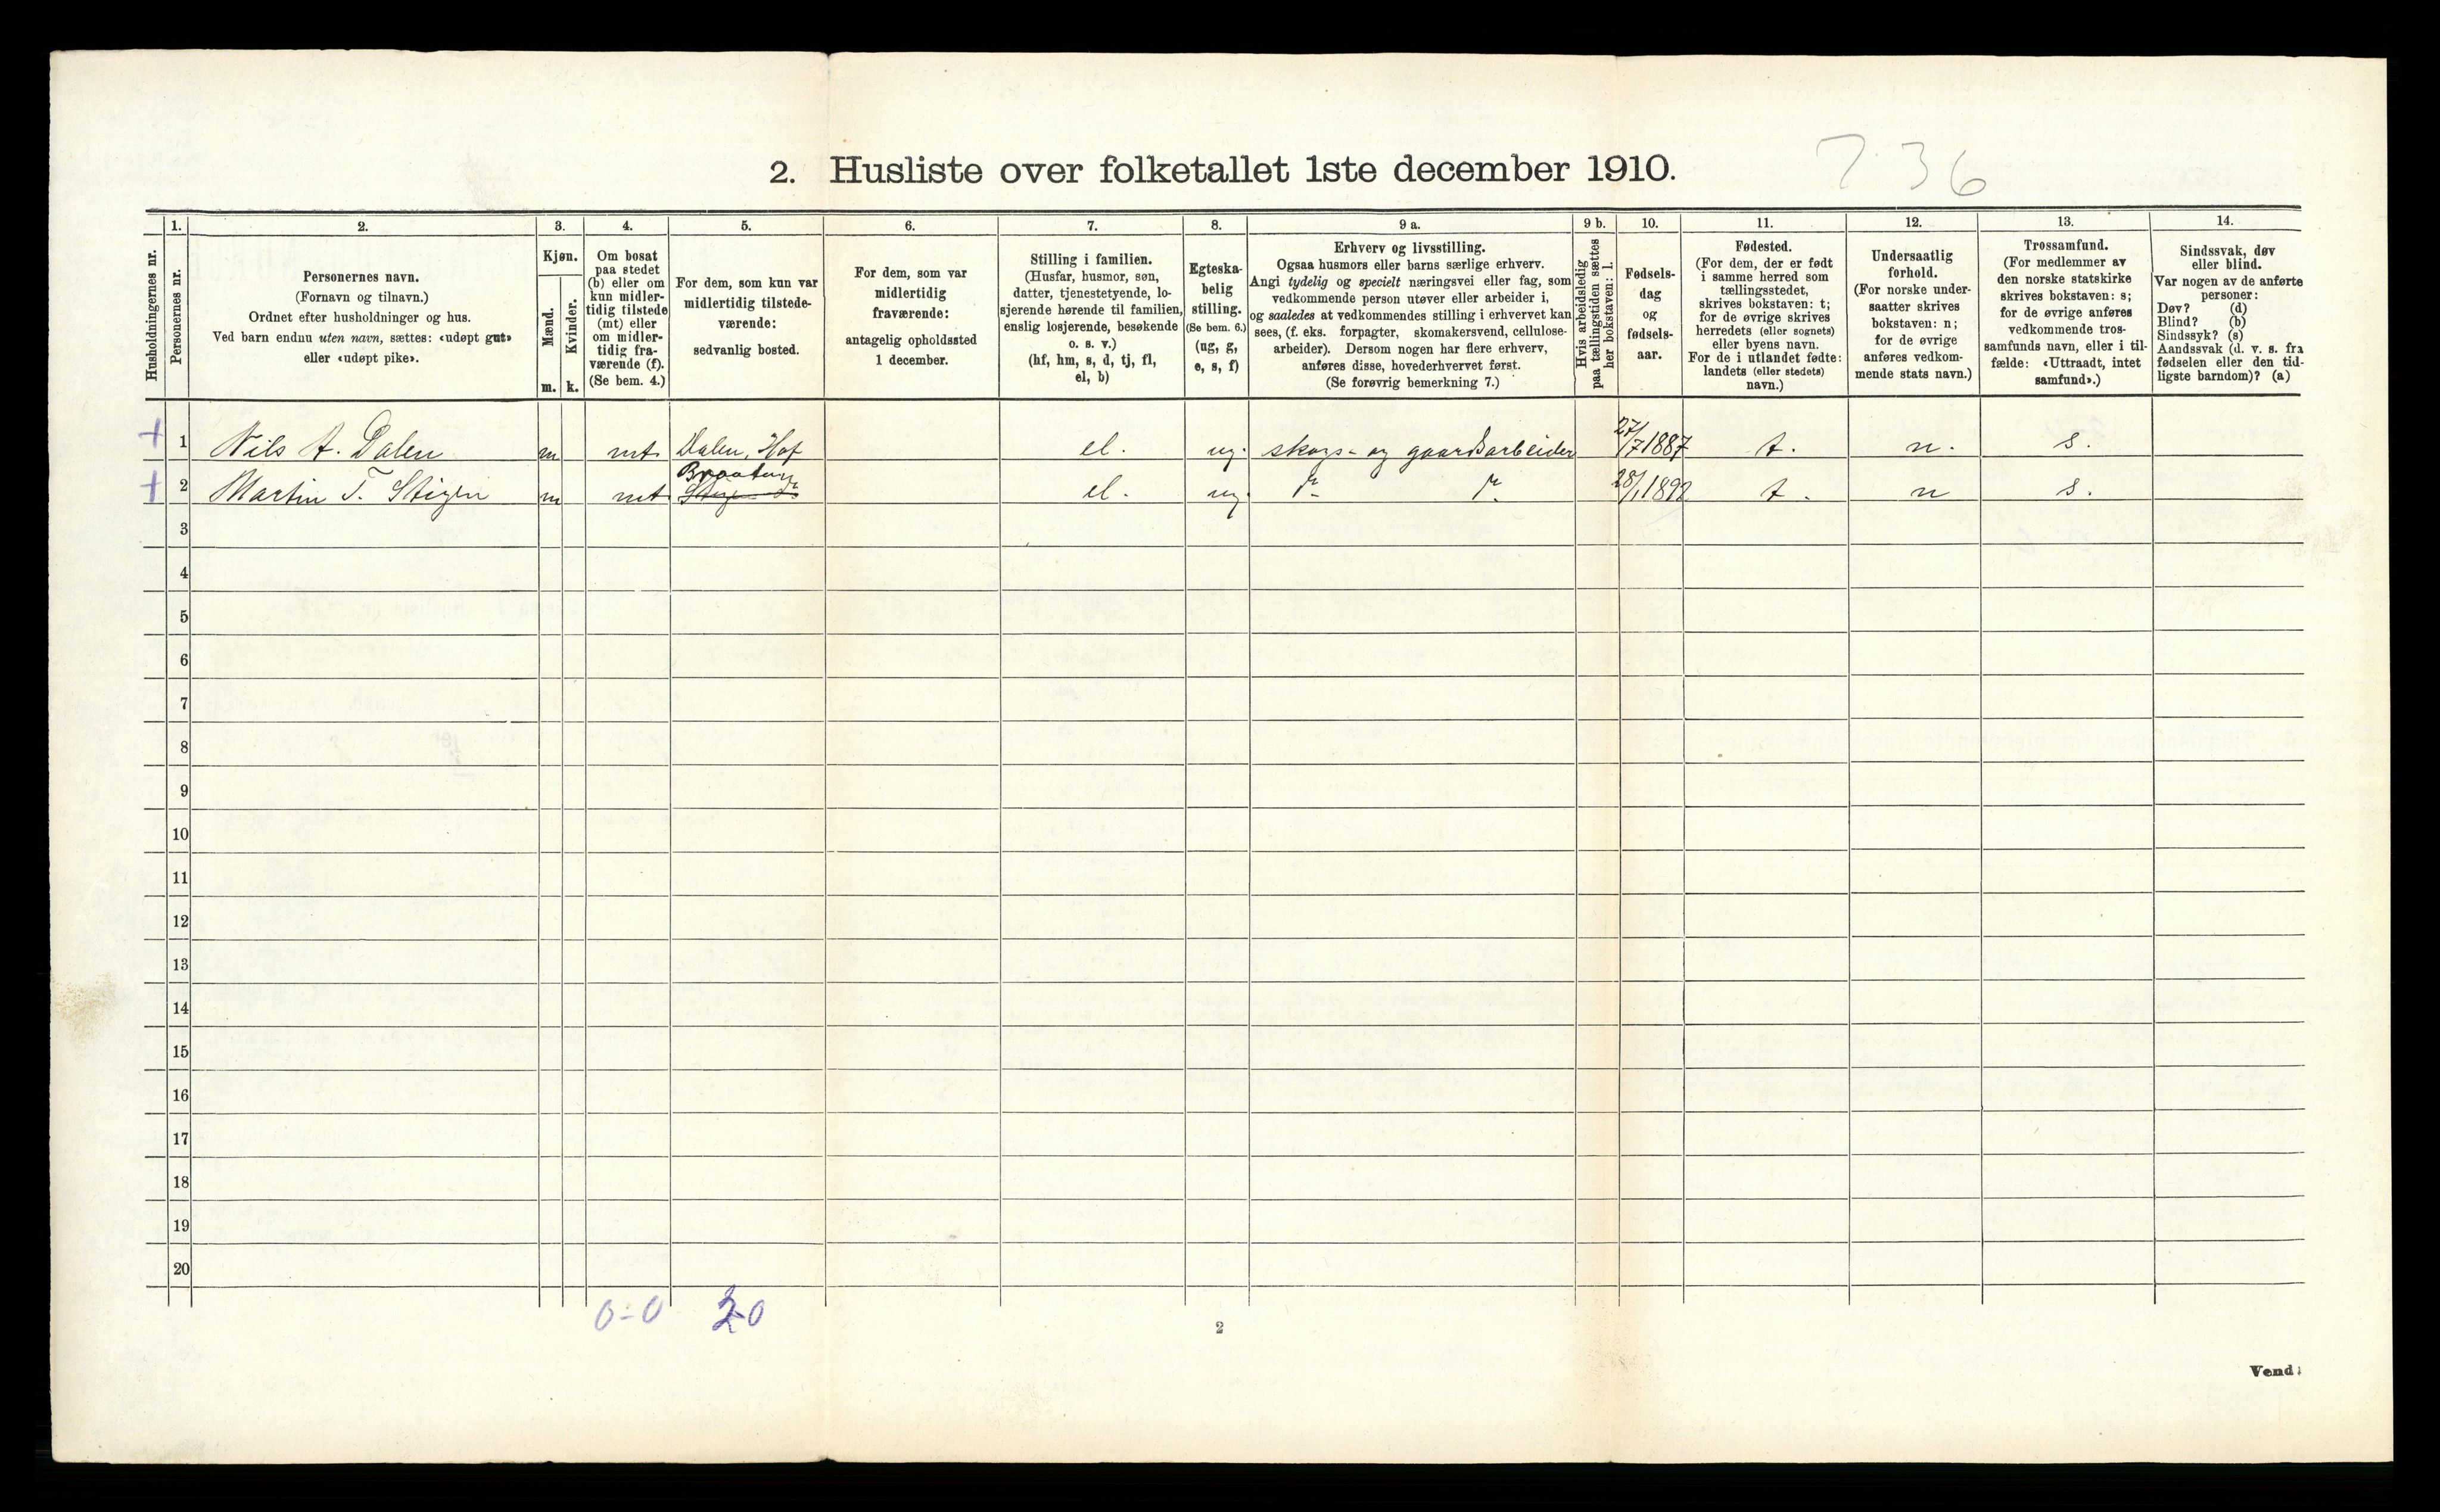 7 36
2. Husliste over folketallet 1ste december 1910.
Husholdningernes nr.
1.
Personernes nr.
2.
Personernes navn.
(Fornavn og tilnavn.)
Ordnet efter husholdninger og hus.
Ved barn endnu uten navn, sættes: «udøpt gut»
eller «udøpt pike».
3.
Kjøn.
Mænd.
Kvinder.
m. k.
4.
Om bosat
paa stedet
(b) eller om
kun midler-
tidig tilstede
(mt) eller
om midler-
tidig fra-
værende (f).
(Se bem. 4.)
5.
For dem, som kun var
midlertidig tilstede-
værende:
sedvanlig bosted.
6.
For dem, som var
midlertidig
fraværende:
antagelig opholdssted
1 december.
7.
Stilling i familien.
(Husfar, husmor, søn,
datter, tjenestetyende, lo-
sjerende hørende til familien,
enslig losjerende, besøkende
o. s. v.)
(hf, hm, s, d, tj, fl,
el, b)
8.
Egteska-
belig
stilling.
(Se bem. 6.)
(ug, g,
e, s, f)
9 a.
Erhverv og livsstilling.
Ogsaa husmors eller barns særlige erhverv.
Angi tydelig og specielt næringsvei eller fag, som
vedkommende person utøver eller arbeider i,
og saaledes at vedkommendes stilling i erhvervet kan
sees, (f. eks. forpagter, skomakersvend, cellulose-
arbeider). Dersom nogen har flere erhverv,
anføres disse, hovederhvervet først.
(Se forøvrig bemerkning 7.)
9 b.
Hvis arbeidsledig
paa tællingstiden sættes
her bokstaven: l.
10.
Fødsels-
dag
og
fødsels-
aar.
11.
Fødested.
(For dem, der er født
i samme herred som
tællingsstedet,
skrives bokstaven: t;
for de øvrige skrives
herredets (eller sognets)
eller byens navn.
For de i utlandet fødte:
landets (eller stedets)
navn.)
12.
Undersaatlig
forhold.
(For norske under-
saatter skrives
bokstaven: n;
for de øvrige
anføres vedkom-
mende stats navn.)
13.
Trossamfund.
(For medlemmer av
den norske statskirke
skrives bokstaven: s;
for de øvrige anføres
vedkommende tros-
samfunds navn, eller i til-
fælde: «Uttraadt, intet
samfund».)
14.
Sindssvak, døv
eller blind.
Var nogen av de anførte
personer:
Døv? (d)
Blind? (b)
Sindssyk? (s)
Aandssvak (d. v. s. fra
fødselen eller den tid-
ligste barndom)? (a)
+ 1 Nils A. Dalen m mt Dalen, Hof el. ug. skogs- og gaardsarbeider 27/7 1887 t. n. s.
+ 2 Martin T. Stigen m mt el. ug. 28/1 1892 t. n s.
3
4
5
6
7
8
9
10
11
12
13
14
15
16
17
18
19
20
0-0
2
Vend!